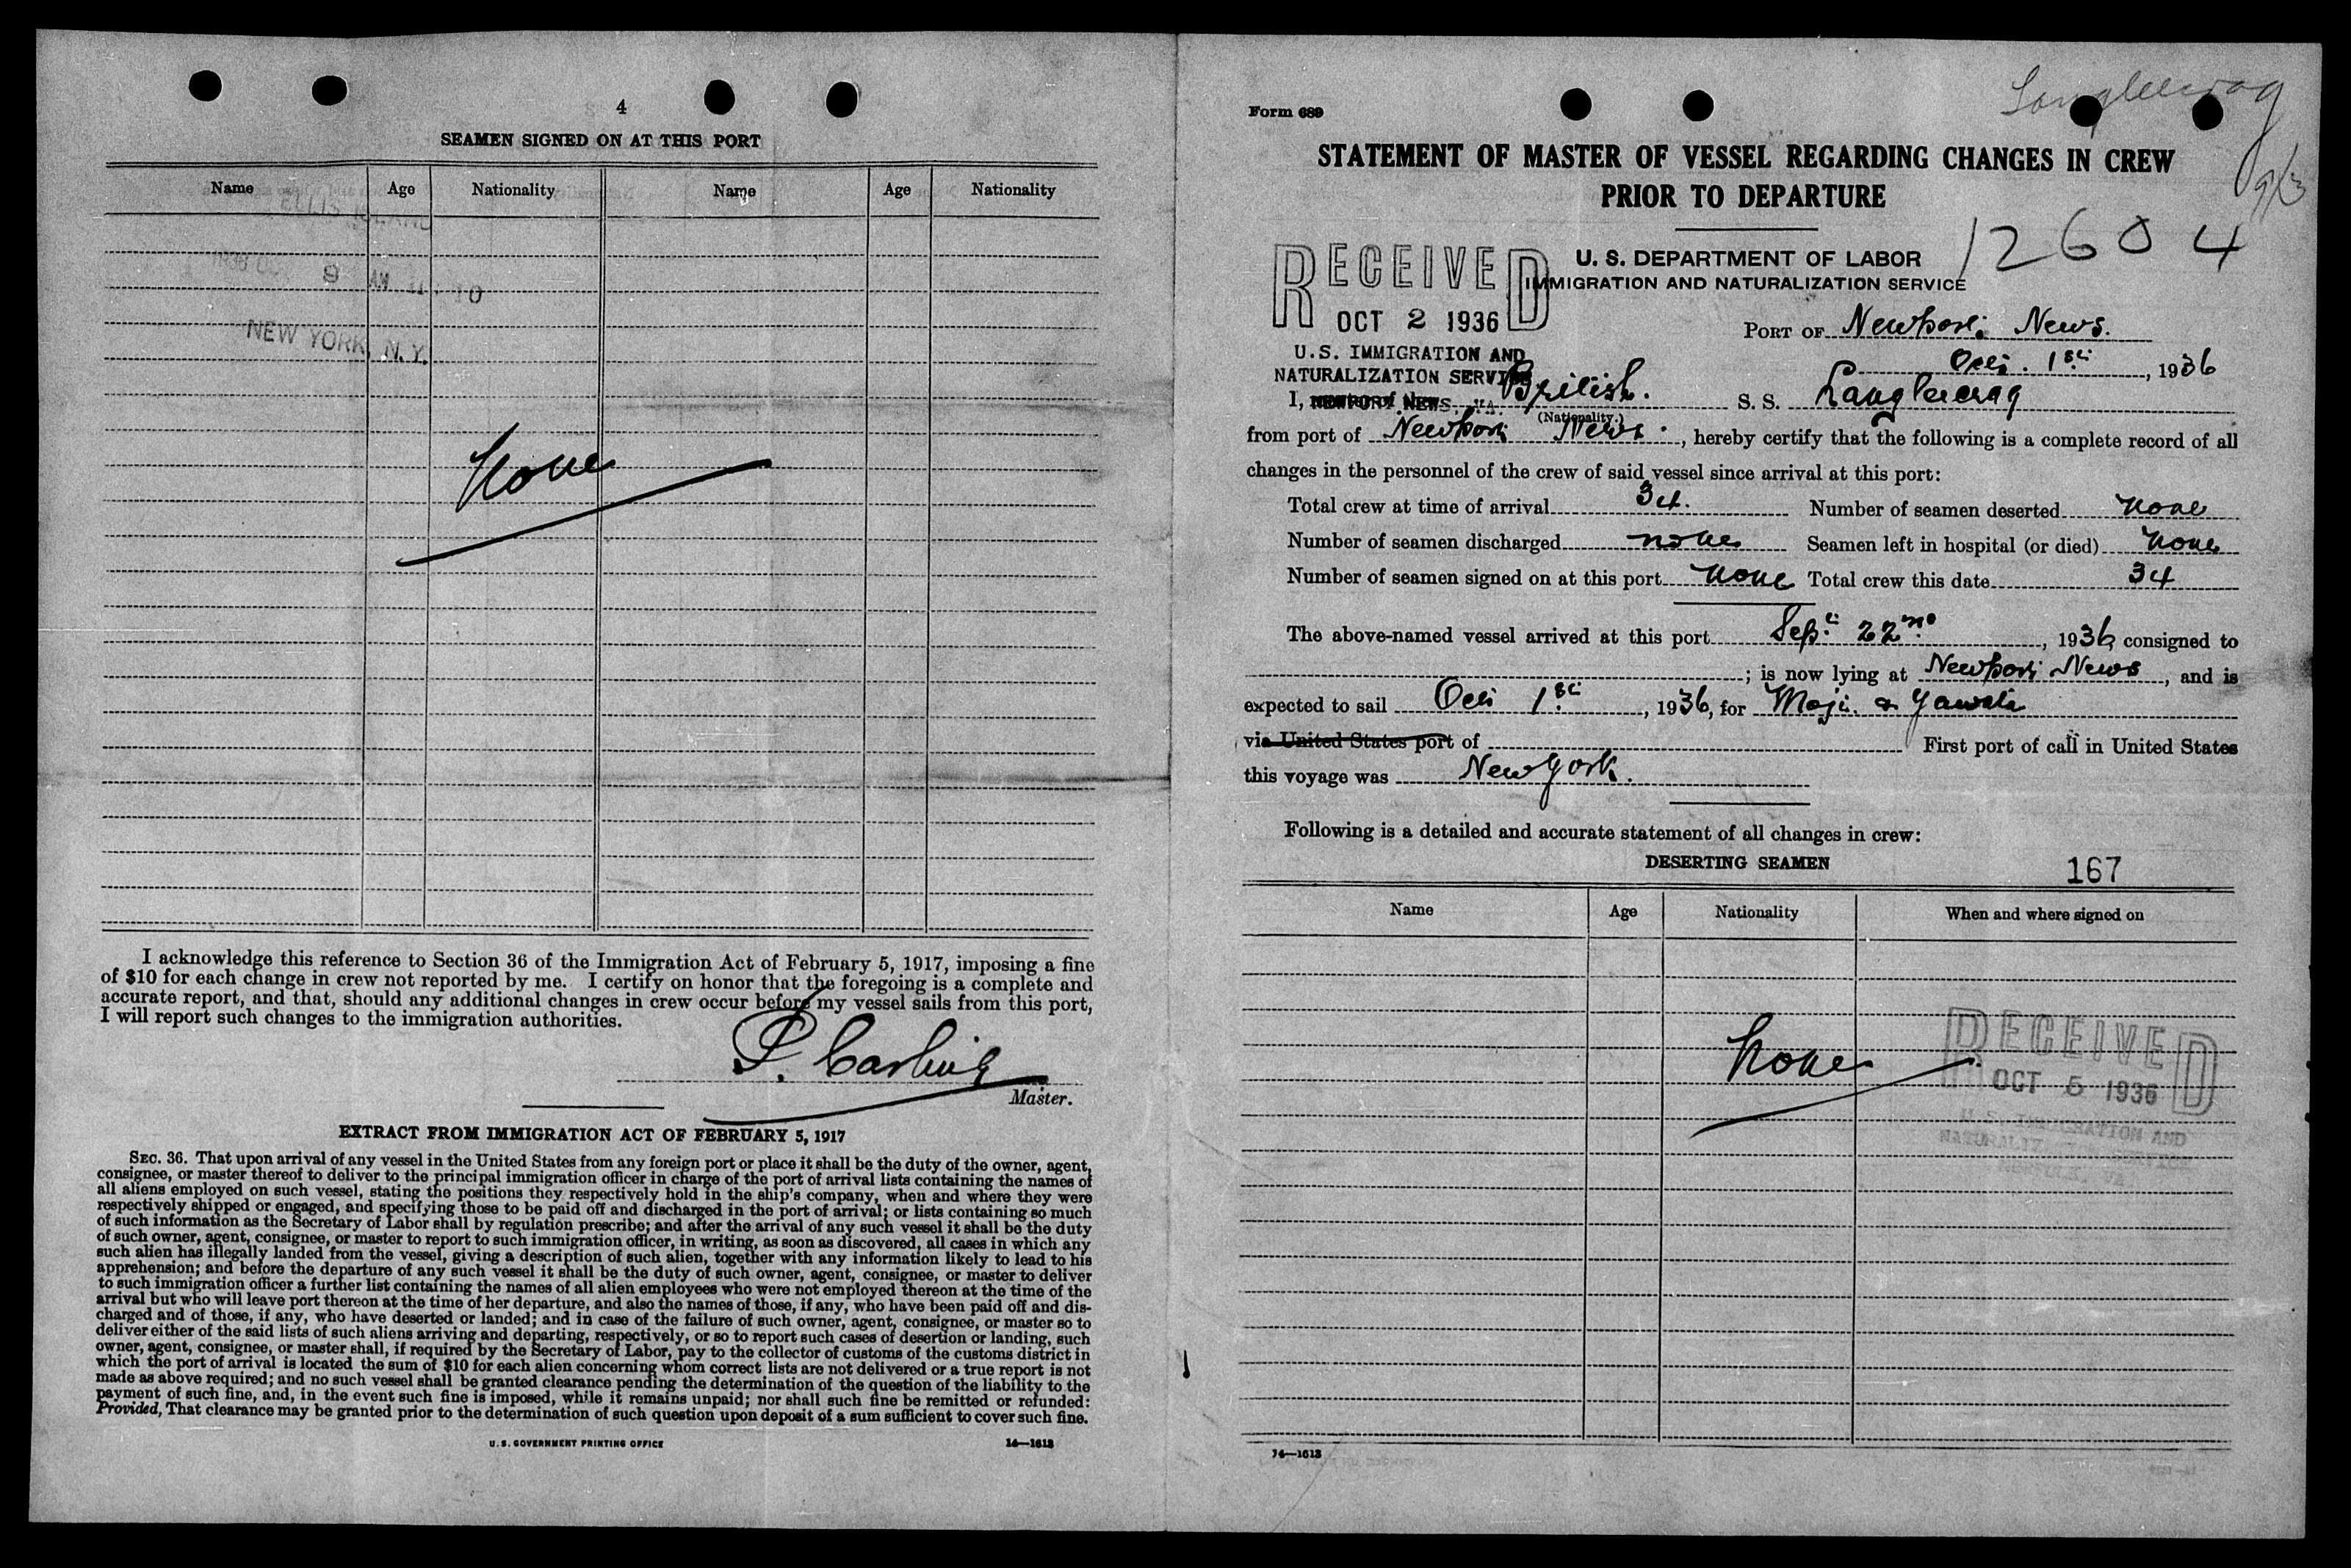 4
SEAMEN SIGNED ON AT THIS PORT
Name Age Nationality Name Age Nationality
ELLIS ISLAND
9 AM 11 10
NEW YORK, N. Y.
None
I acknowledge this reference to Section 36 of the Immigration Act of February 5, 1917, imposing a fine
of $10 for each change in crew not reported by me. I certify on honor that the foregoing is a complete and
accurate report, and that, should any additional changes in crew occur before my vessel sails from this port,
I will report such changes to the immigration authorities.
Master.
EXTRACT FROM IMMIGRATION ACT OF FEBRUARY 5, 1917
SEC. 36. That upon arrival of any vessel in the United States from any foreign port or place it shall be the duty of the owner, agent,
consignee, or master thereof to deliver to the principal immigration officer in charge of the port of arrival lists containing the names of
all aliens employed on such vessel, stating the positions they respectively hold in the ship's company, when and where they were
respectively shipped or engaged, and specifying those to be paid off and discharged in the port of arrival; or lists containing so much
of such information as the Secretary of Labor shall by regulation prescribe; and after the arrival of any such vessel it shall be the duty
of such owner, agent, consignee, or master to report to such immigration officer, in writing, as soon as discovered, all cases in which any
such alien has illegally landed from the vessel, giving a description of such alien, together with any information likely to lead to his
apprehension; and before the departure of any such vessel it shall be the duty of such owner, agent, consignee, or master to deliver
to such immigration officer a further list containing the names of all alien employees who were not employed thereon at the time of the
arrival but who will leave port thereon at the time of her departure, and also the names of those, if any, who have been paid off and dis-
charged and of those, if any, who have deserted or landed; and in case of the failure of such owner, agent, consignee, or master so to
deliver either of the said lists of such aliens arriving and departing, respectively, or so to report such cases of desertion or landing, such
owner, agent, consignee, or master shall, if required by the Secretary of Labor, pay to the collector of customs of the customs district in
which the port of arrival is located the sum of $10 for each alien concerning whom correct lists are not delivered or a true report is not
made as above required; and no such vessel shall be granted clearance pending the determination of the question of the liability to the
payment of such fine, and, in the event such fine is imposed, while it remains unpaid; nor shall such fine be remitted or refunded:
Provided, That clearance may be granted prior to the determination of such question upon deposit of a sum sufficient to cover such fine.
U. S. GOVERNMENT PRINTING OFFICE 14—1613
Langleecrag
Form 689
STATEMENT OF MASTER OF VESSEL REGARDING CHANGES IN CREW
PRIOR TO DEPARTURE
12604
U. S. DEPARTMENT OF LABOR
IMMIGRATION AND NATURALIZATION SERVICE
RECEIVED
OCT 2 1936
U.S. IMMIGRATION AND
NATURALIZATION SERVICE
NEWPORT NEWS, VA.
PORT OF Newport News.
Oct. 1st, 1936
I, British. S. S. Langleecrag
(Nationality)
from port of Newport News., hereby certify that the following is a complete record of all
changes in the personnel of the crew of said vessel since arrival at this port:
Total crew at time of arrival 34. Number of seamen deserted none
Number of seamen discharged none Seamen left in hospital (or died) none
Number of seamen signed on at this port none Total crew this date 34
The above-named vessel arrived at this port Sept. 22nd, 1936, consigned to
; is now lying at Newport News, and is
expected to sail Oct 1st, 1936, for Moji & Yawata
via United States port of First port of call in United States
this voyage was New York.
Following is a detailed and accurate statement of all changes in crew:
DESERTING SEAMEN
167
Name Age Nationality When and where signed on
None
RECEIVED
OCT 5 1936
U. S. IMMIGRATION AND
NATURALIZATION SERVICE
NORFOLK, VA
14—1613